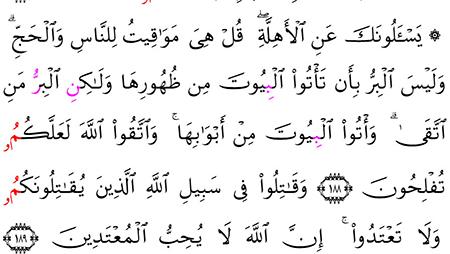 ۞ يَسْـَٔلُونَكَ عَنِ ٱلْأَهِلَّةِ ۖ قُلْ هِىَ مَوَٰقِيتُ لِلنَّاسِ وَٱلْحَجِّ ۗ
وَلَيْسَ ٱلْبِرُّ بِأَن تَأْتُوا۟ ٱلْبِيُوتَ مِن ظُهُورِهَا وَلَـٰكِنِ ٱلْبِرُّ مَنِ
ٱتَّقَىٰ ۗ وَأْتُوا۟ ٱلْبِيُوتَ مِنْ أَبْوَٰبِهَا ۚ وَٱتَّقُوا۟ ٱللَّهَ لَعَلَّكُمُۥ
تُفْلِحُونَ ١٨٨ وَقَـٰتِلُوا۟ فِى سَبِيلِ ٱللَّهِ ٱلَّذِينَ يُقَـٰتِلُونَكُمُۥ
وَلَا تَعْتَدُوٓا۟ ۚ إِنَّ ٱللَّهَ لَا يُحِبُّ ٱلْمُعْتَدِينَ ١٨٩